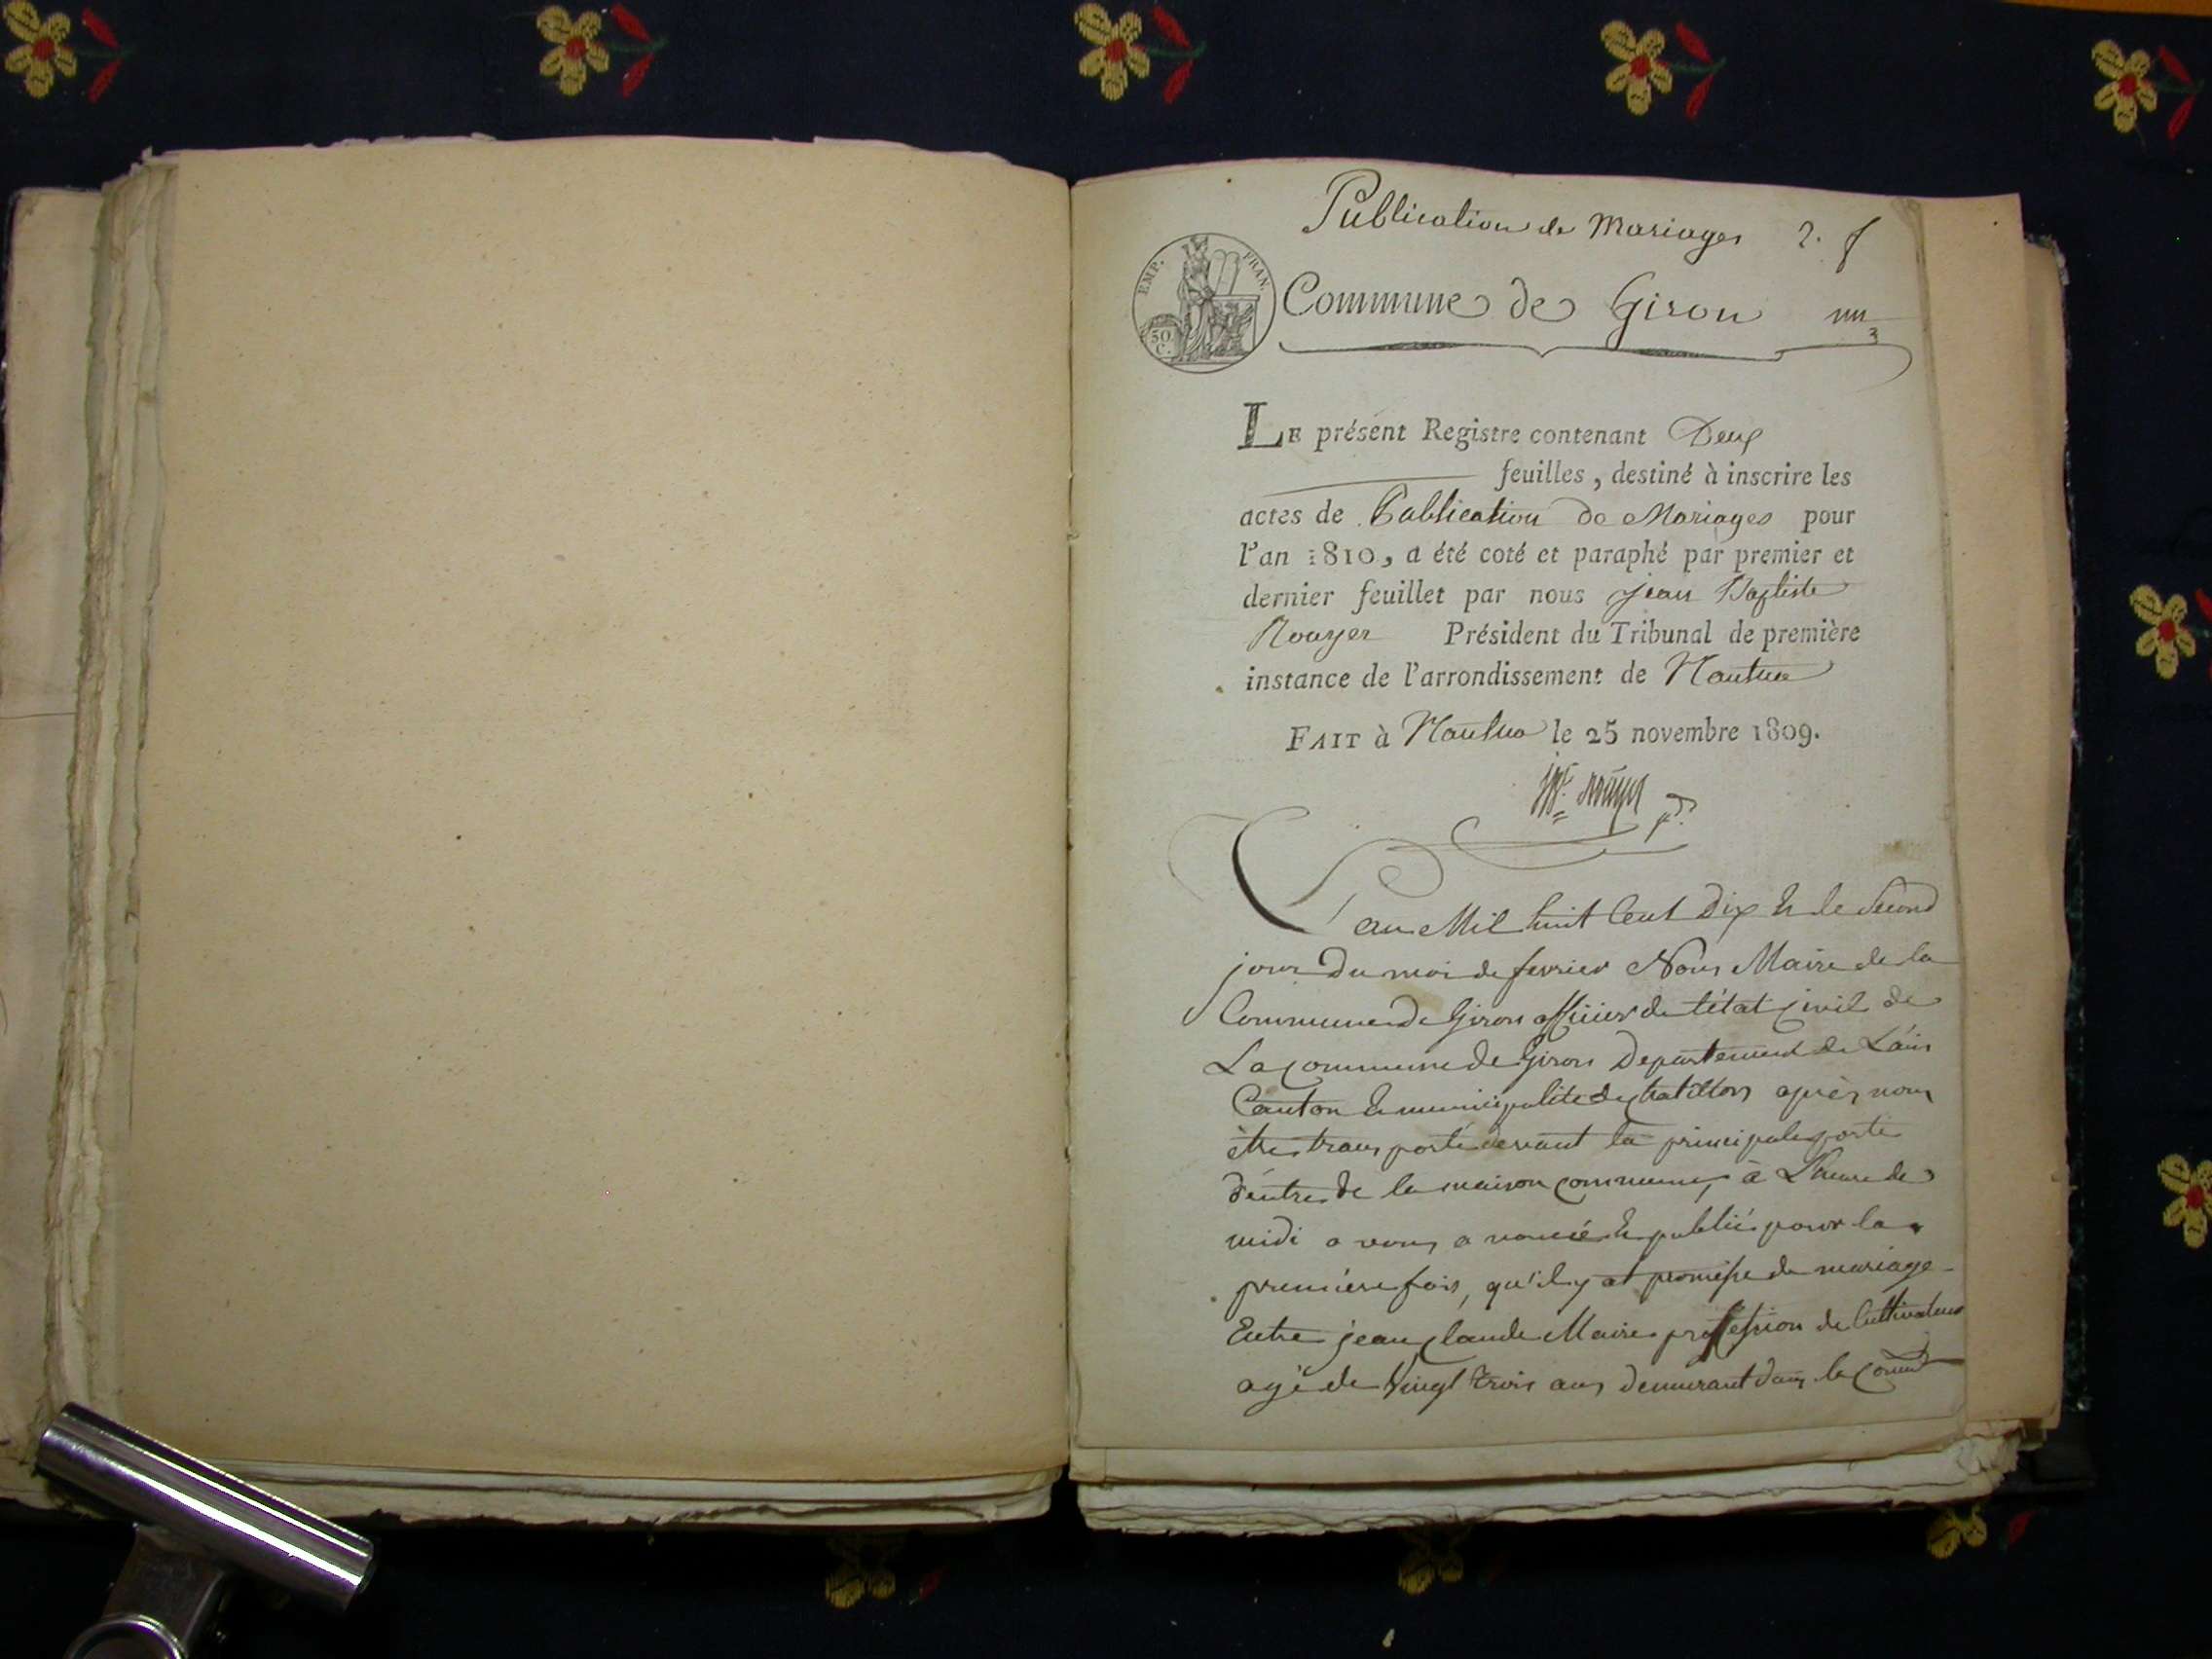 Publication de Mariages 2. f
EMP. FRAN.
50 C.
Commune de Giron
LE présent Registre contenant Deux
feuilles, destiné à inscrire les
actes de Publication de Mariages pour
l'an 1810, a été coté et paraphé par premier et
dernier feuillet par nous jean Baptiste
Rouyer Président du Tribunal de première
instance de l'arrondissement de Nantua
FAIT à Nantua le 25 novembre 1809.
L'an Mil huit Cent Dix & le Second
jour Du moi de fevrier Nous Maire de la
Commune De Giron officier de l'état civil de
La commune de Giron Departement de L'ain
Canton & municipalité de chatillon après nous
être transporté devant la principale porte
d'entre de la maison commune, à L'heure de
midi a vons a noncé & publié pour la
première fois, qu'il y at promesse de mariage
Entre jean claude Maire profession de Cultivateur
agé de Vingt trois ans demeurant dans la